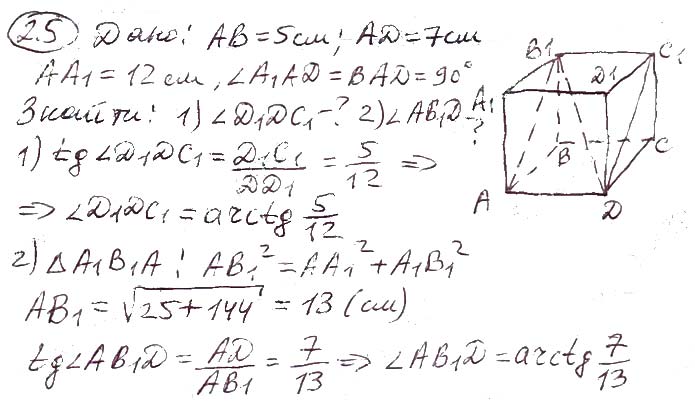 2.5 Дано: AB = 5 см; AD = 7 см
AA1 = 12 см, ∠A1AD = BAD = 90°
Знайти: 1) ∠D1DC1 - ? 2) ∠AB1D - ?
1) tg ∠D1DC1 = D1C1/DD1 = 5/12 =>
=> ∠D1DC1 = arctg 5/12
2) △A1B1A: AB1² = AA1² + A1B1²
AB1 = √25 + 144 = 13 (см)
tg ∠AB1D = AD/AB1 = 7/13 => ∠AB1D = arctg 7/13
B1 C1
A1 D1
B C
A D